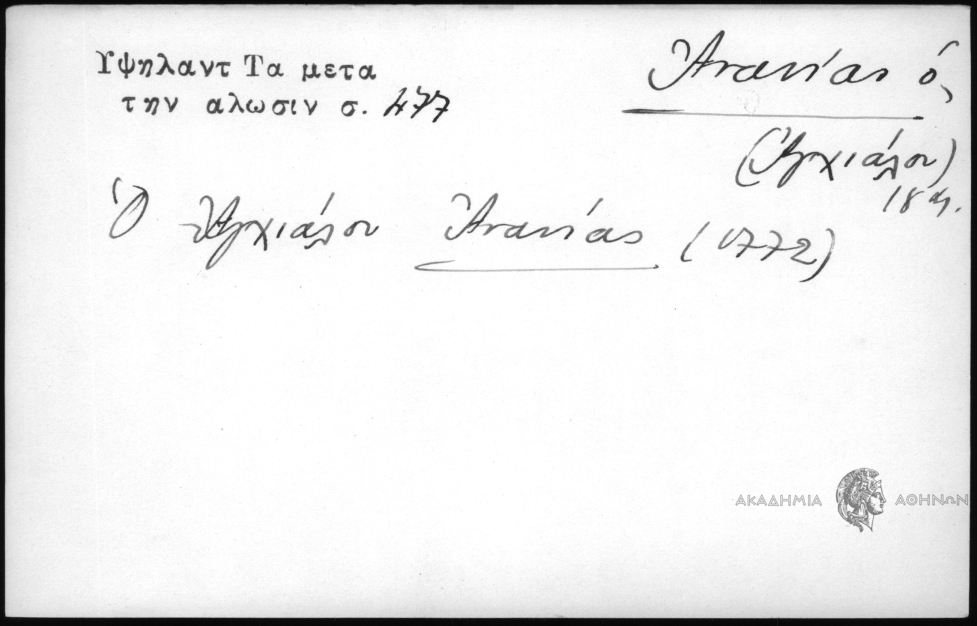 Υψηλαντ Τα μετα
την αλωσιν σ. 477
Ἀνανίας ὁ,
(Ἀγχιάλου)
18 αἰ.
Ὁ Ἀγχιάλου Ἀνανίας (1772)
ΑΚΑΔΗΜΙΑ ΑΘΗΝΩΝ